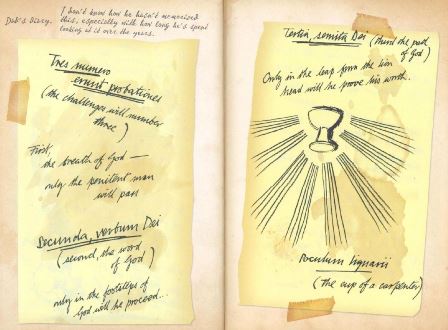 Dad's Diary.
I don't know how he hasn't memorised
this, especially with how long he's spent
looking at it over the years.
Tres numero
erunt probationes
(the challenges will number
three)
First,
the breath of God –
only the penitent man
will pass
Secunda, verbum Dei
(second, the word
of God)
only in the footsteps of
God will he proceed..
Tertia, semita Dei (third the path
of God)
Only in the leap from the lion
head will he prove his worth.
Poculum lignarii
(the cup of a carpenter)